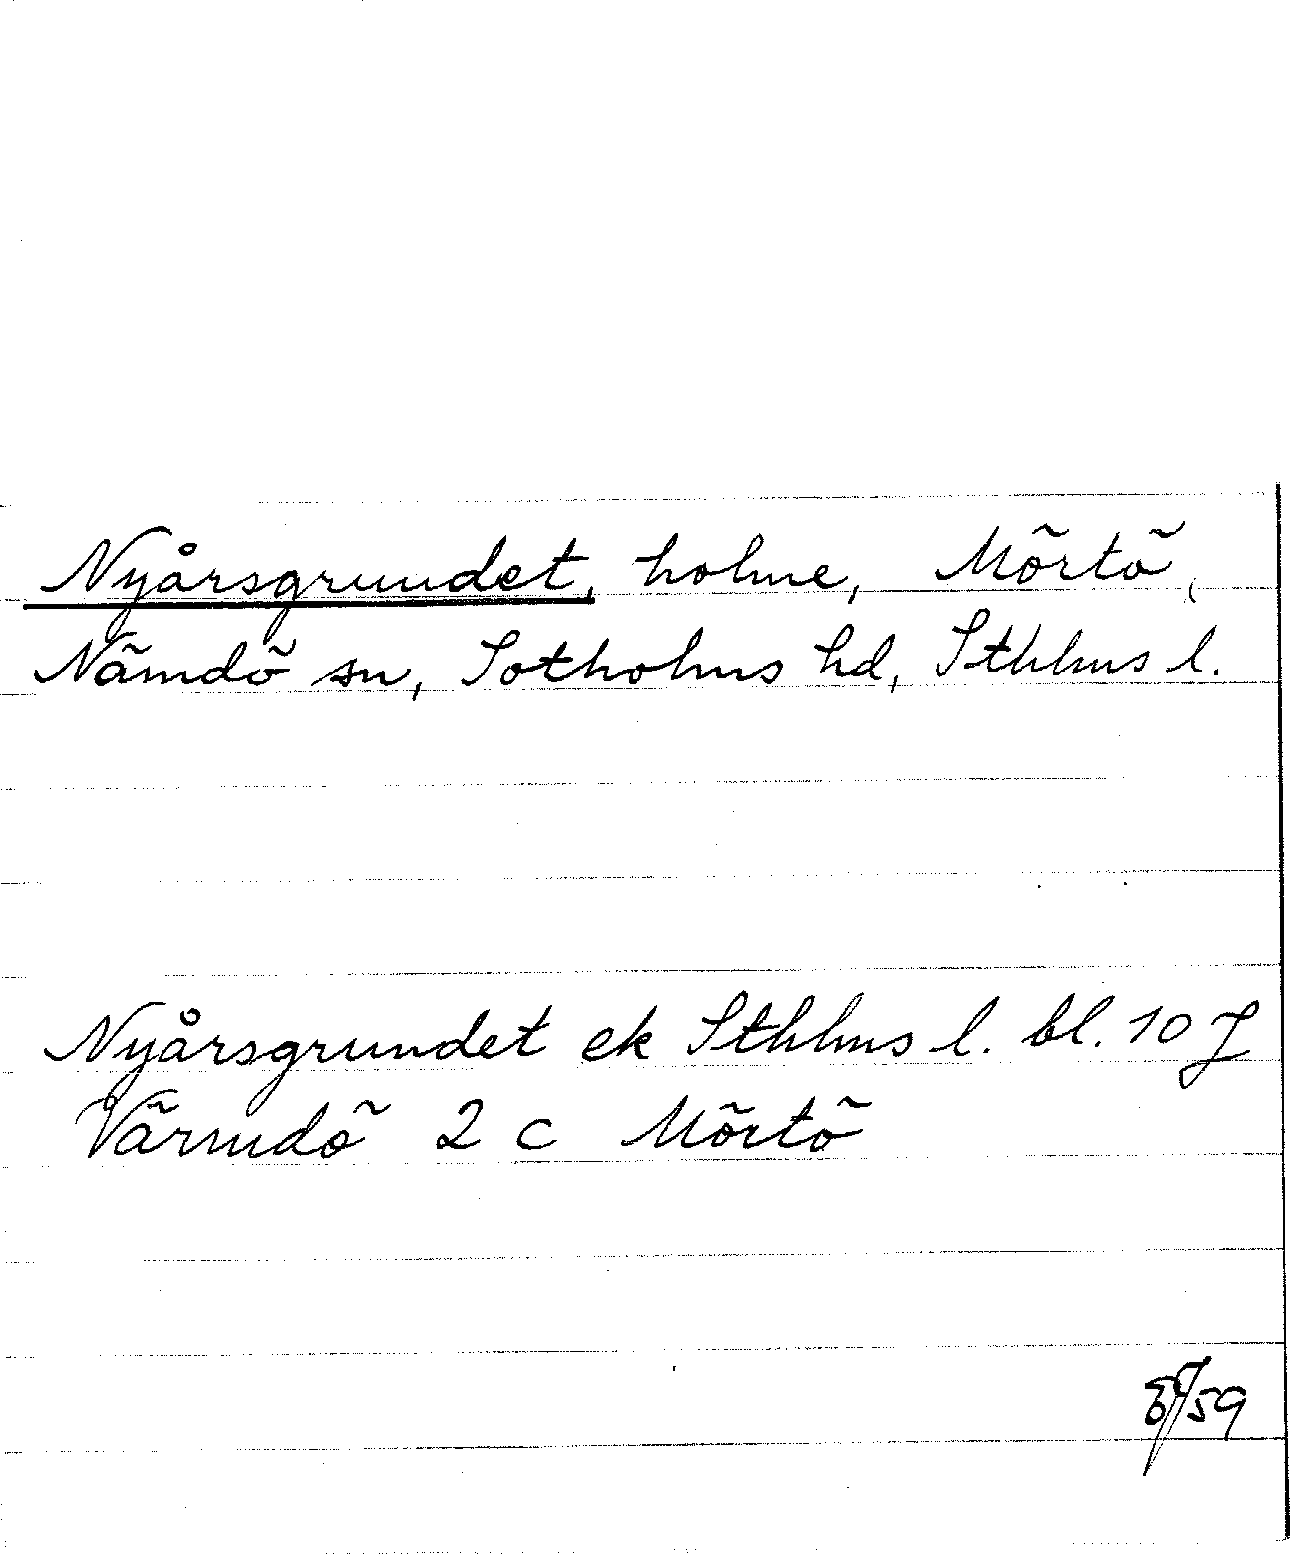 Nyårsgrundet, holme, Mörtö,
Nämdö sn, Sotholms hd, Sthlms l.
Nyårsgrundet ek Sthlms l. bl. 10 J
Värmdö 2 c Mörtö
59